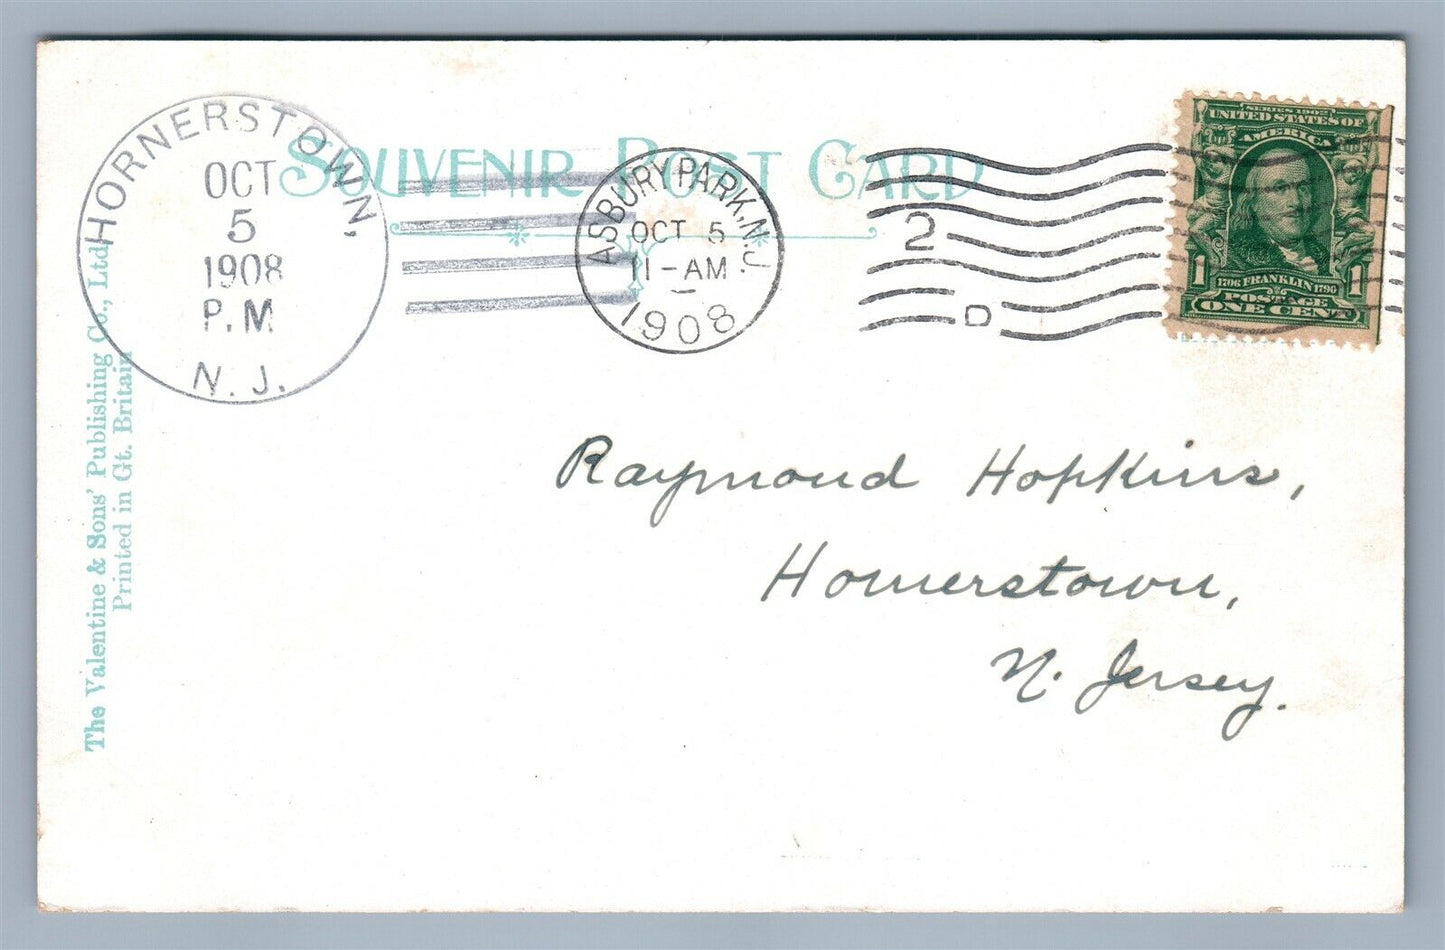 SOUVENIR POST CARD
HORNERSTOWN,
OCT
5
1908
P.M
N. J.
ASBURY PARK, N.J.
OCT 5
11-AM
1908
2
D
SERIES 1902
UNITED STATES OF
AMERICA
1 1706 FRANKLIN 1790 1
POSTAGE
ONE CENT
Raymond Hopkins,
Hornerstown,
N. Jersey.
The Valentine & Sons' Publishing Co., Ltd.
Printed in Gt. Britain